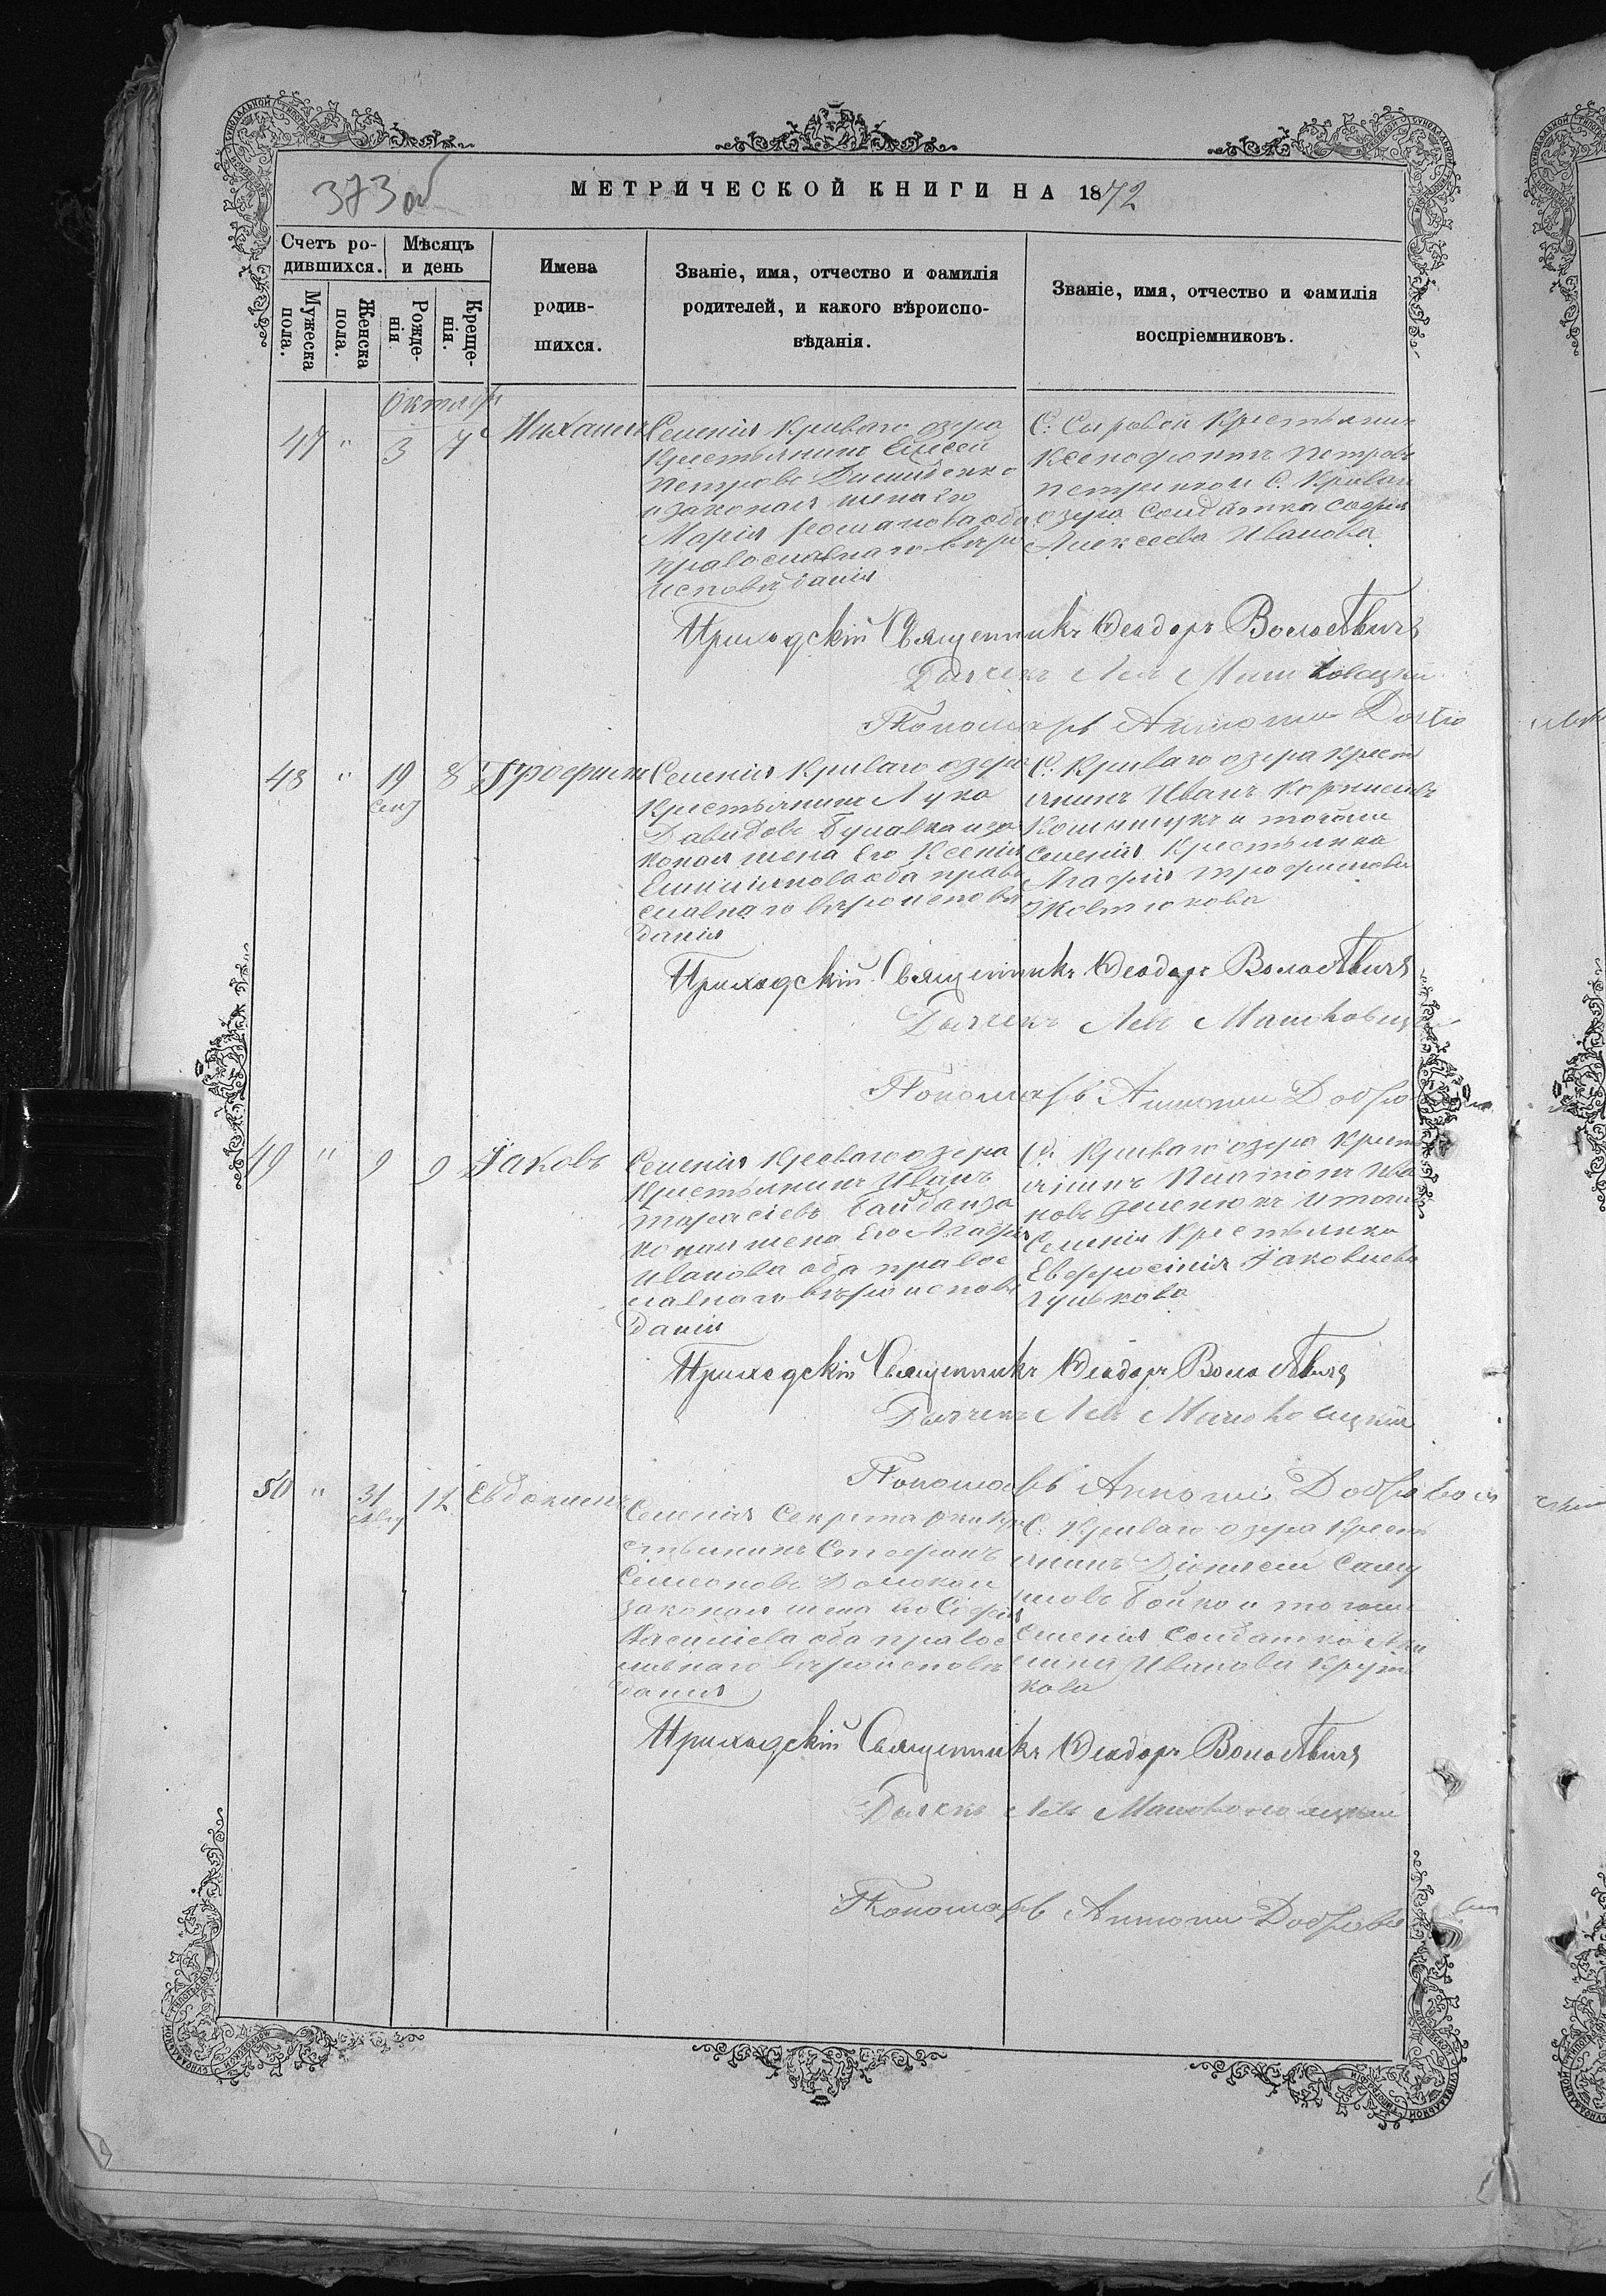 373 об
МЕТРИЧЕСКОЙ КНИГИ НА 1872
Счетъ ро-
дившихся.
Мѣсяцъ
и день
Мужеска
пола.
Женска
пола.
Рожде-
нія
Креще-
нія.
Имена
родив-
шихся.
Званіе, имя, отчество и фамилія
родителей, и какого вѣроиспо-
вѣданія.
Званіе, имя, отчество и фамилія
воспріемниковъ.
Октябрь
47 " 3 7 Михаилъ
Селенія Криваго озера
Крестьянинъ Елисей
Петровъ
и законая жена Его
Марія Романова оба
православнаго вѣро
исповѣданія
С: Сыровой Крестьянинъ
Ксенофонтъ Петровъ
С. Криваго
озера Солдатка Софія
Алексеева Иванова
Приходскій Священникъ Ѳеодоръ
Дьячекъ Левъ
Пономарь Антоній
48 " 19 8 Трофимъ
Селенія Криваго озера
Крестьянинъ Лука
Давидовъ Булавка и за
коная жена Его Ксенія
Емиліянова оба право
славнаго вѣроисповѣ
данія
С: Криваго озера Крест
янинъ Иванъ Корнилiевъ
и тогоже
Селенія Крестьянка
Агафія Трофимова
Приходскій Священникъ Ѳеодоръ
Дьячекъ Левъ
Пономарь Антоній
49 " 9 9 Іаковъ
Селенія Криваго озера
Крестьянинъ Иванъ
Тарасіевъ Байда и за
коная жена Его Агафія
Иванова оба правос
лавнаго вѣроисповѣ
данія
С: Криваго озера Крест
янинъ Платонъ Ива
новъ и тогоже
Селенія Крестьянка
Евфросинія Іаковлева
Гулькова
Приходскій Священникъ Ѳеодоръ
Дьячекъ Левъ
Пономарь Антоній
50 " 31 12 Евдокимъ
Селенія Секретарки Кре
стьянинъ Стефанъ
Симеоновъ
законая жена его Софія
Василіева оба правос
лавнаго вѣроисповѣ
данія
С: Криваго озера Крест
янинъ Діонисій Саму
иловъ Бойко и тогоже
Селенія Солдатка Аки
лина Иванова Крут
кова
Приходскій Священникъ Ѳеодоръ
Дьячекъ Левъ
Пономарь Антоній